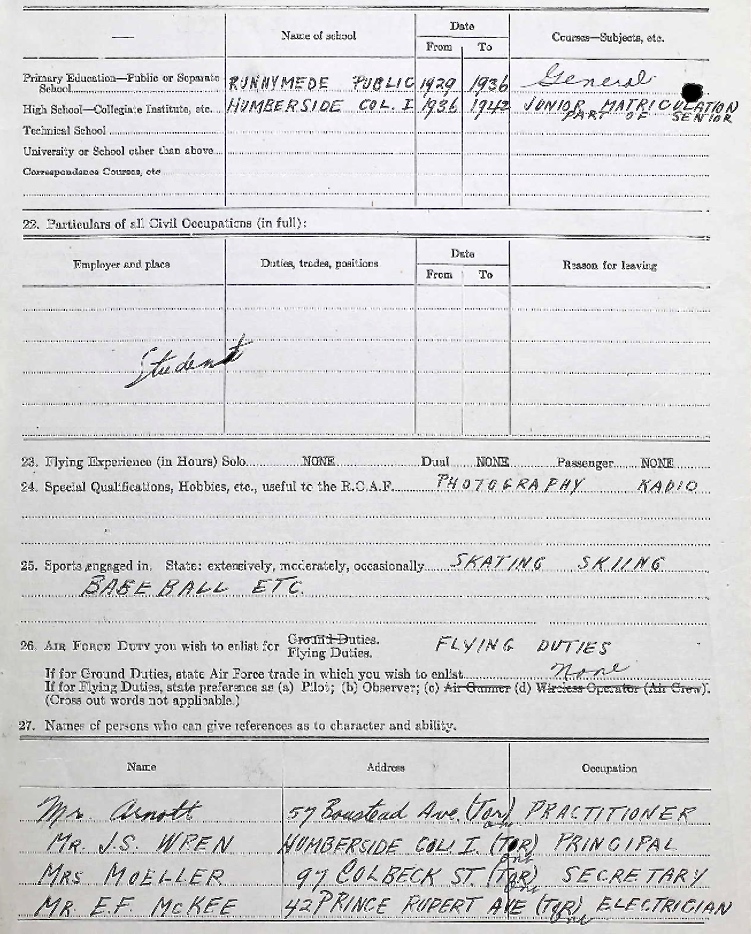 Name of school Date Courses—Subjects, etc.
From To
Primary Education—Public or Separate
School RUNNYMEDE PUBLIC 1929 1936 General
High School—Collegiate Institute, etc. HUMBERSIDE COL. I 1936 1942 JUNIOR MATRICULATION
PART OF SENIOR
Technical School
University or School other than above
Correspondence Courses, etc
22. Particulars of all Civil Occupations (in full):
Employer and place Duties, trades, positions Date Reason for leaving
From To
Student
23. Flying Experience (in Hours) Solo NONE Dual NONE Passenger NONE
24. Special Qualifications, Hobbies, etc., useful to the R.C.A.F. PHOTOGRAPHY RADIO
25. Sports engaged in. State: extensively, moderately, occasionally SKATING SKIING
BASEBALL ETC.
26. AIR FORCE DUTY you wish to enlist for Ground Duties.
Flying Duties. FLYING DUTIES
If for Ground Duties, state Air Force trade in which you wish to enlist none
If for Flying Duties, state preference as (a) Pilot; (b) Observer; (c) Air Gunner (d) Wireless Operator (Air Crew).
(Cross out words not applicable.)
27. Names of persons who can give references as to character and ability.
Name Address Occupation
Mr. Arnott 57 Boustead Ave. (Tor) ont PRACTITIONER
MR. J.S. WREN HUMBERSIDE COL. I. (TOR) ont PRINCIPAL
MRS MOELLER 97 COLBECK ST. (TOR) ont SECRETARY
MR. E.F. McKEE 42 PRINCE RUPERT AVE (TOR) ont ELECTRICIAN